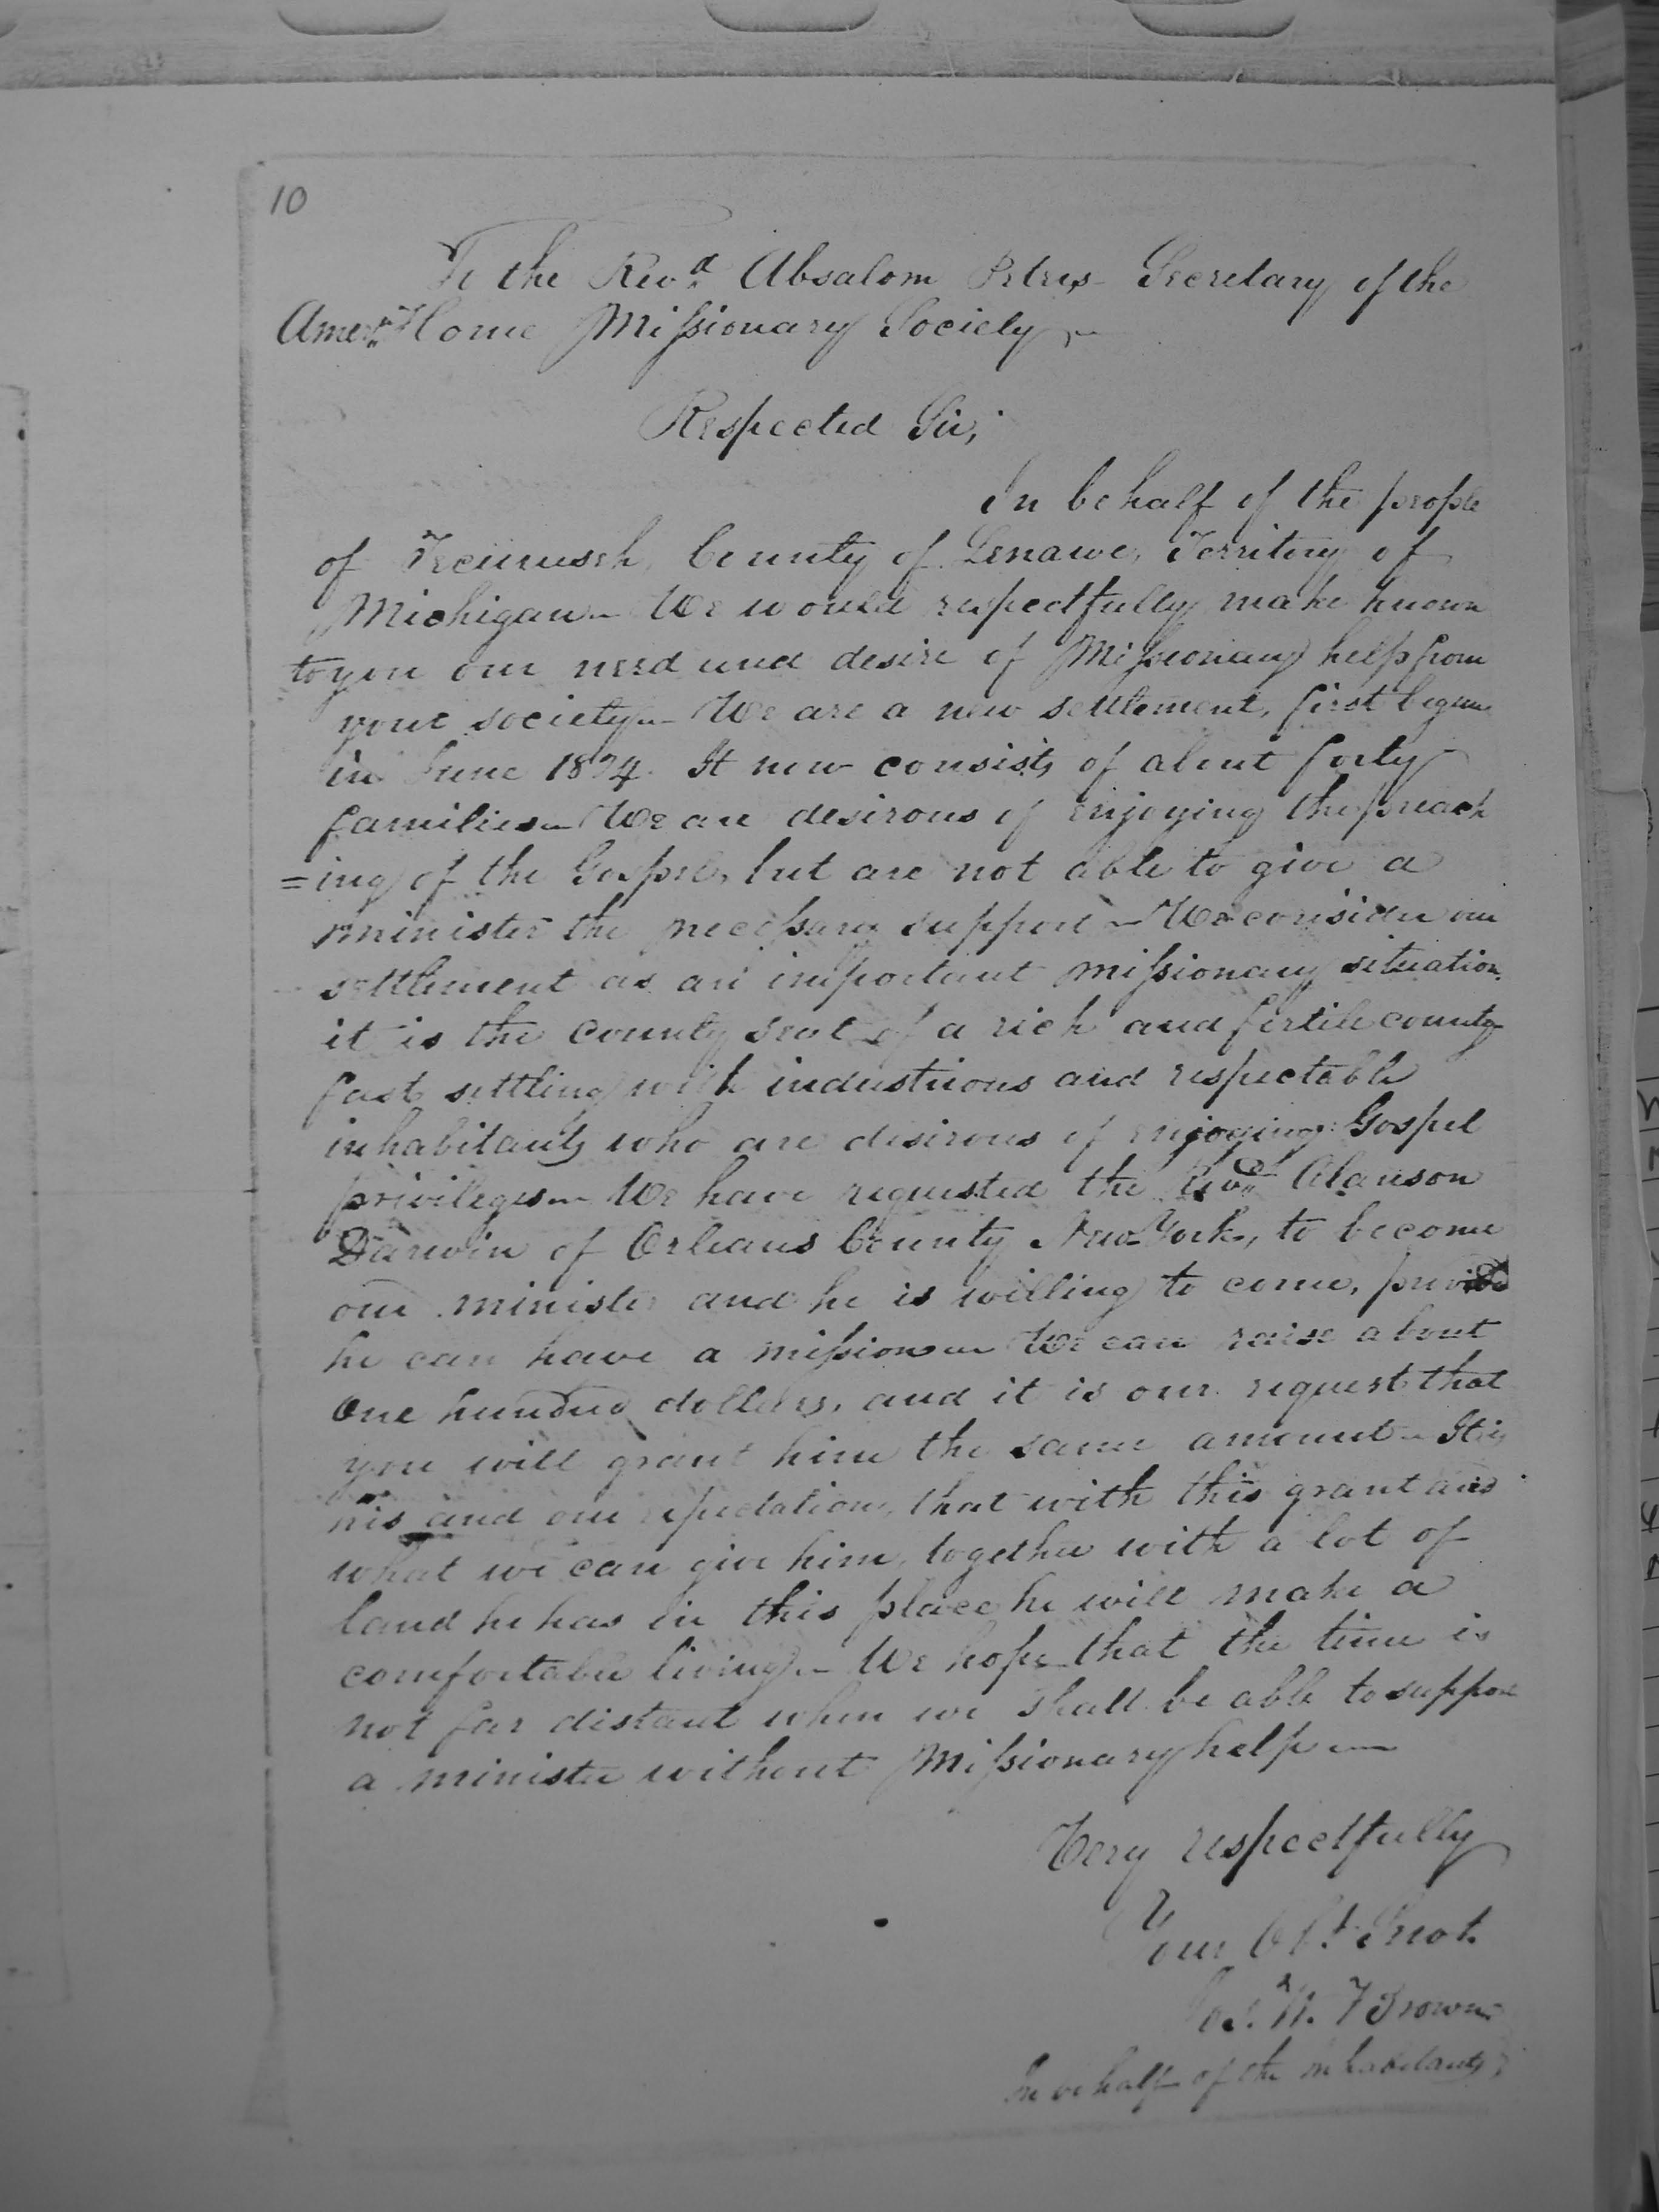 10
To the Revd. Absalom Peters Secretary of the
Amern. Home Missionary Society,
Respected Sir,
In behalf of the people
of Tecumseh, County of Lenawe, Territory of
Michigan — We would respectfully make known
to you our need and desire of Missionary help from
your society — We are a new settlement, first begun
in June 1824. It now consists of about forty
families — We are desirous of enjoying the preach
=ing of the Gospel, but are not able to give a
minister the necessary support — We consider our
settlement as an important missionary situation,
it is the County seat of a rich and fertile county
fast settling with industrious and respectable
inhabitants who are desirous of enjoying Gospel
privileges — We have requested the Revd. Alanson
Darwin of Orleans County New York, to become
our minister and he is willing to come, provided
he can have a mission — We can raise about
One hundred dollars, and it is our request that
you will grant him the same amount — It is
his and our expectation, that with this grant and
what we can give him, together with a lot of
land he has in this place he will make a
comfortable living — We hope that the time is
not far distant when we shall be able to support
a minister without Missionary help —
Very respectfully
Your Obt. Servt.
W. Brown
In behalf of the inhabitants